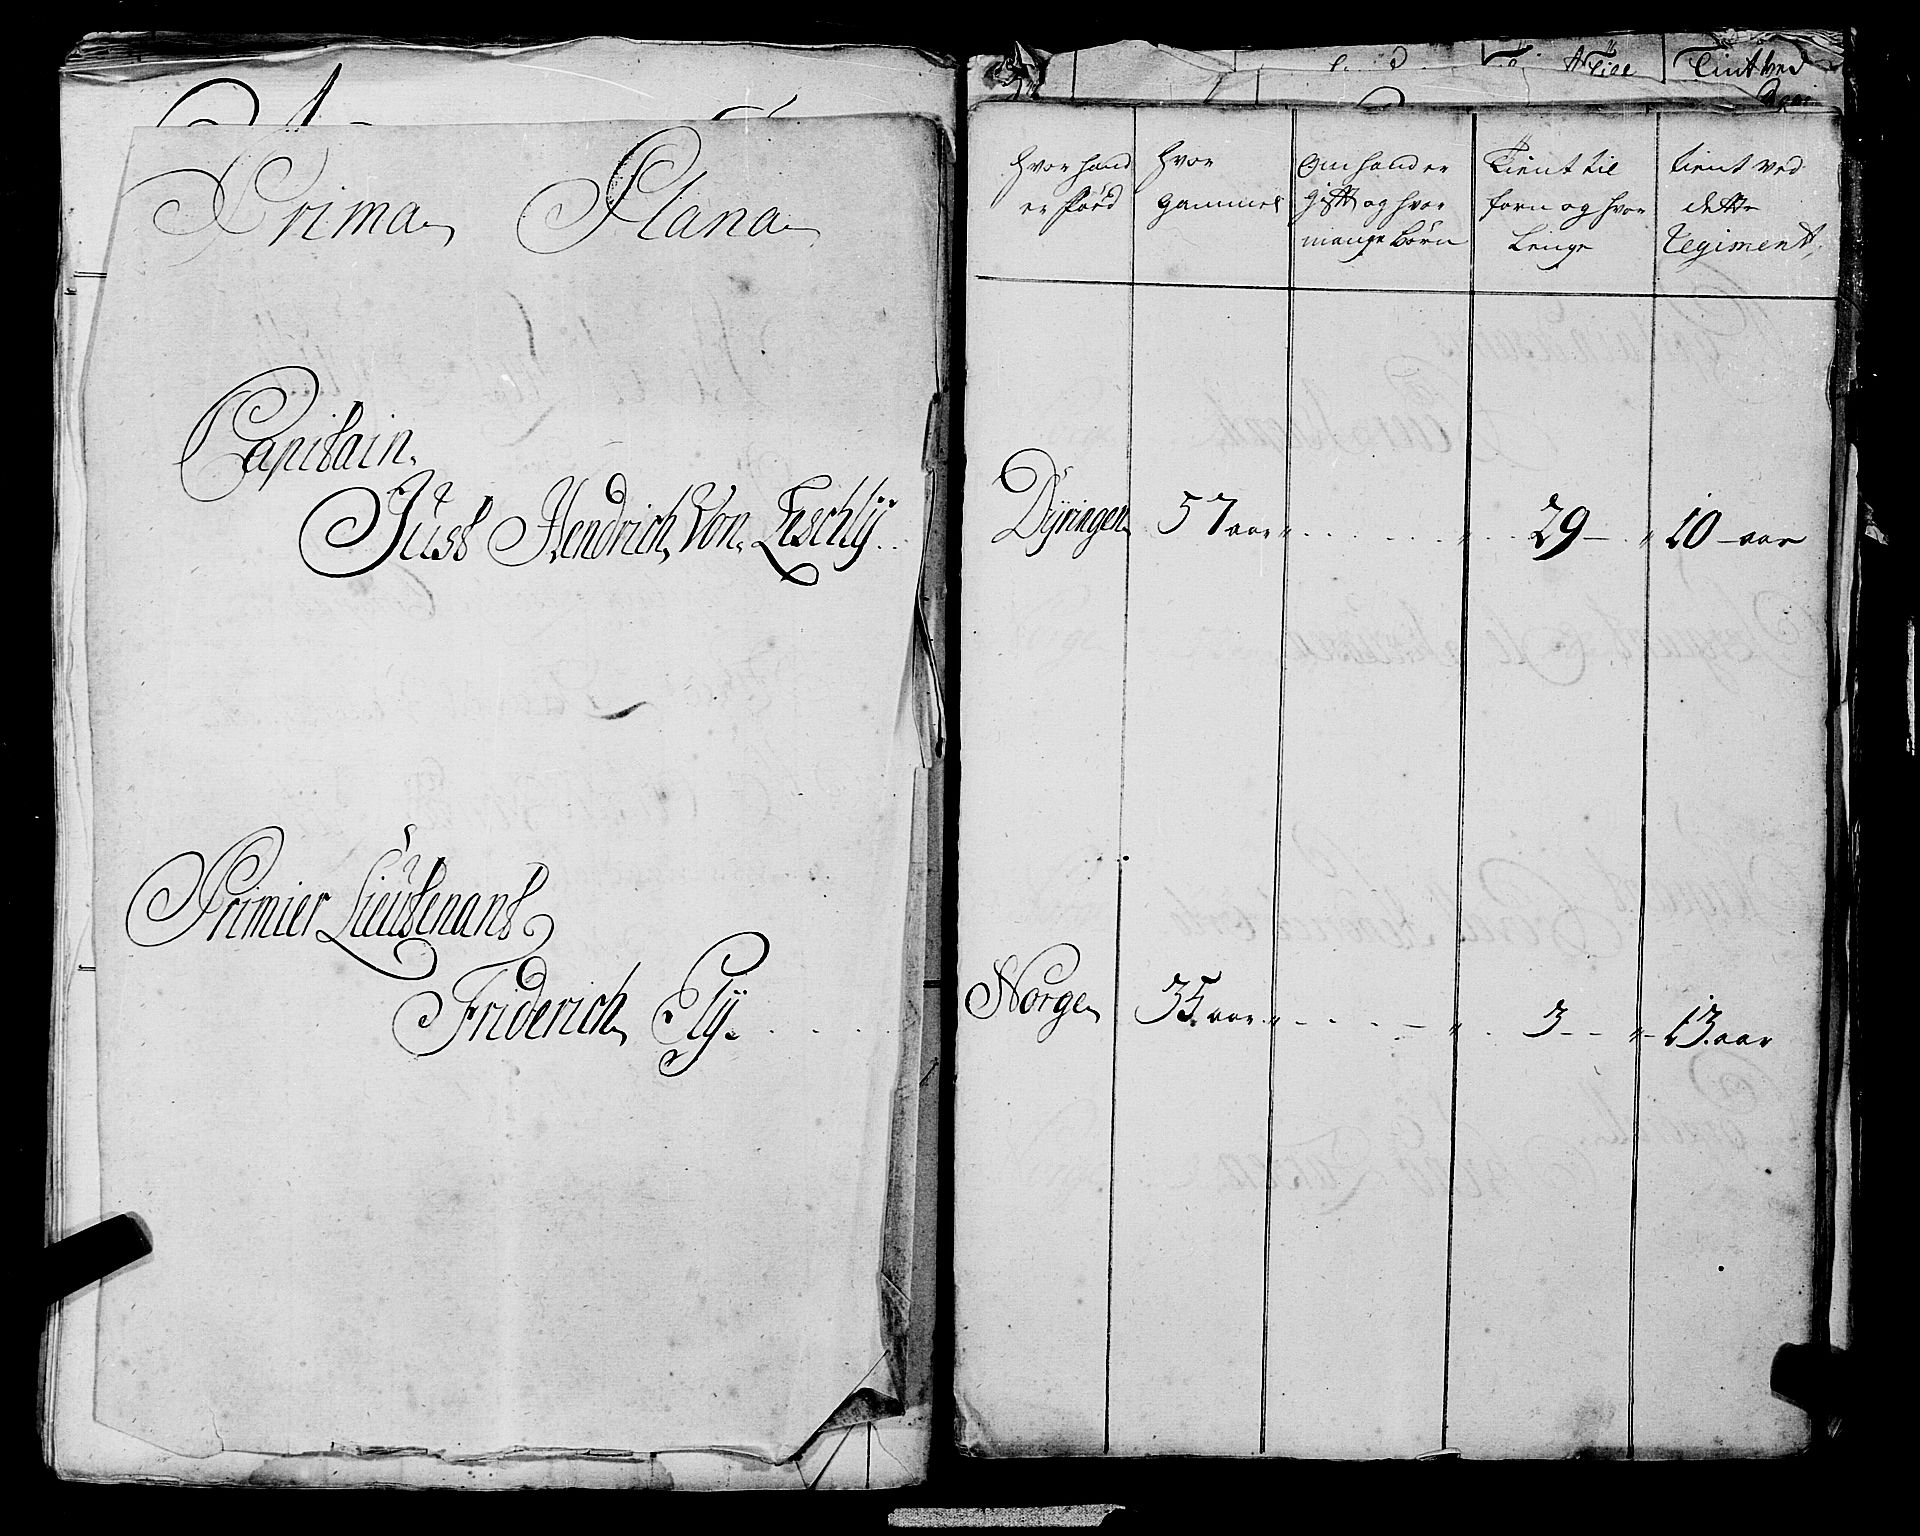 Prima Plana
Capitain.
Just Hendrich Von Leschly
Primier Lieutenant
Friderich Ely.
hvor hand
er Føed
hvor
gammel
Om hand er
gifft og hvor
mange børn
Tient til
forn og hvor
Lenge
tient ved
dette
Regiment,
Dÿringen 57 aar 29 10 aar
Norge 35. aar 3 13. aar
Tient ved